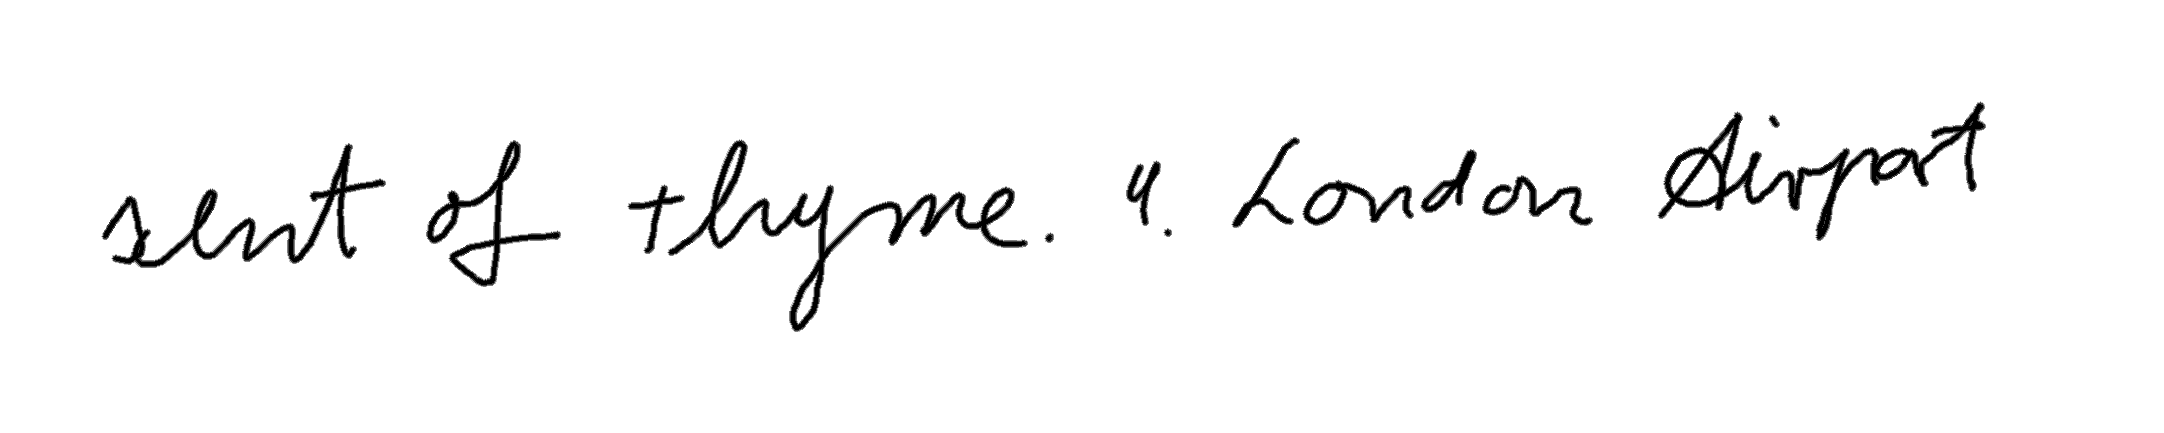 sent of thyme. 4. London Airport